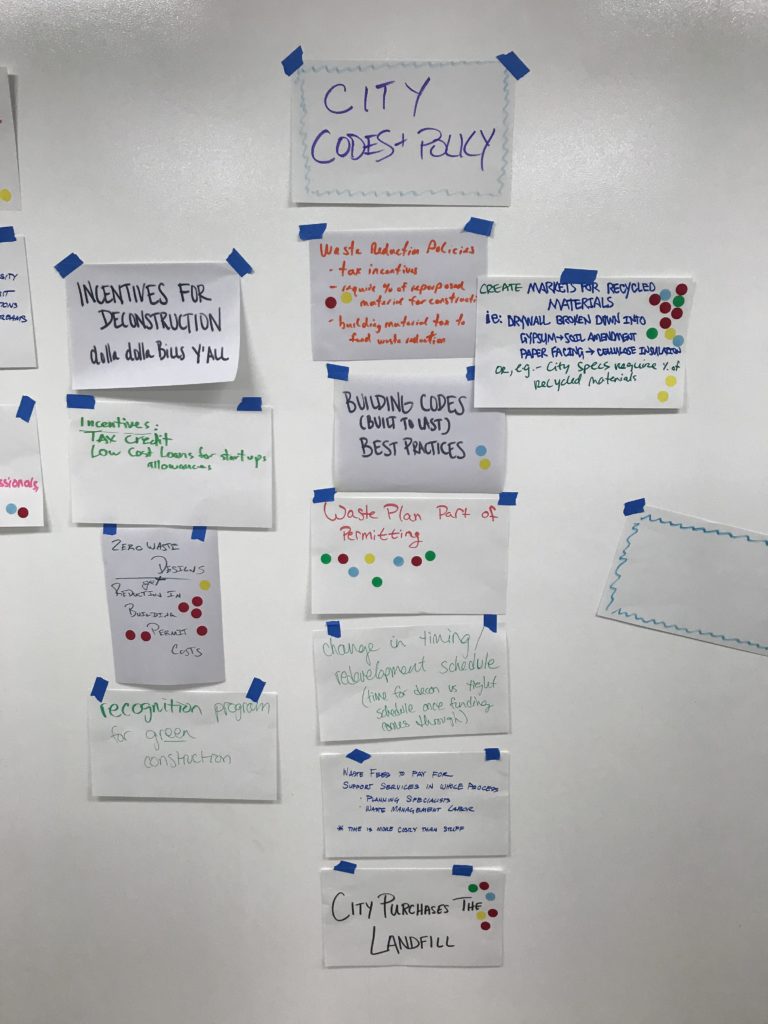 CITY
CODES + POLICY
INCENTIVES FOR
DECONSTRUCTION
dolla dolla Bills Y'ALL
Incentives:
TAX Credit
Low Cost Loans for startups
allowances
ZERO WASTE
DESIGNS
get
REDUCTION IN
BUILDING
PERMIT
COSTS
recognition program
for green
construction
Waste Reduction Policies
- tax incentives
- require % of repurposed
material for constructi
- building material tax to
fund waste reduction
BUILDING CODES
(BUILT TO LAST)
BEST PRACTICES
Waste Plan Part of
Permitting
change in timing
redevelopment schedule
(time for decon vs
schedule once funding
comes through)
WASTE FEES TO PAY FOR
SUPPORT SERVICES IN WHOLE PROCESS
· PLANNING SPECIALISTS
· WASTE MANAGEMENT LABOR
* TIME IS MORE COSTLY THAN STUFF
CITY PURCHASES THE
LANDFILL
CREATE MARKETS FOR RECYCLED
MATERIALS
ie: DRYWALL BROKEN DOWN INTO
GYPSUM → SOIL AMENDMENT
PAPER FACING → CELLULOSE INSULATION
OR, eg. - City Specs require % of
recycled materials
ssionals,